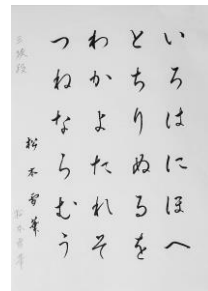 いろはにほへ
とちりぬるを
わかよたれそ
つねならむう
松本雪華